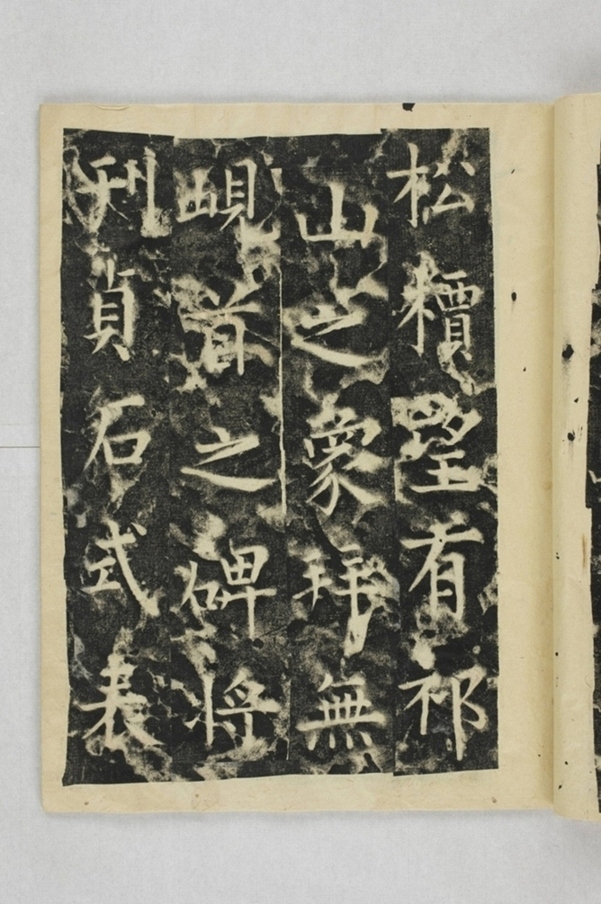 松檟望有祁
山之象拜無
峴首之碑将
刋貞石式表